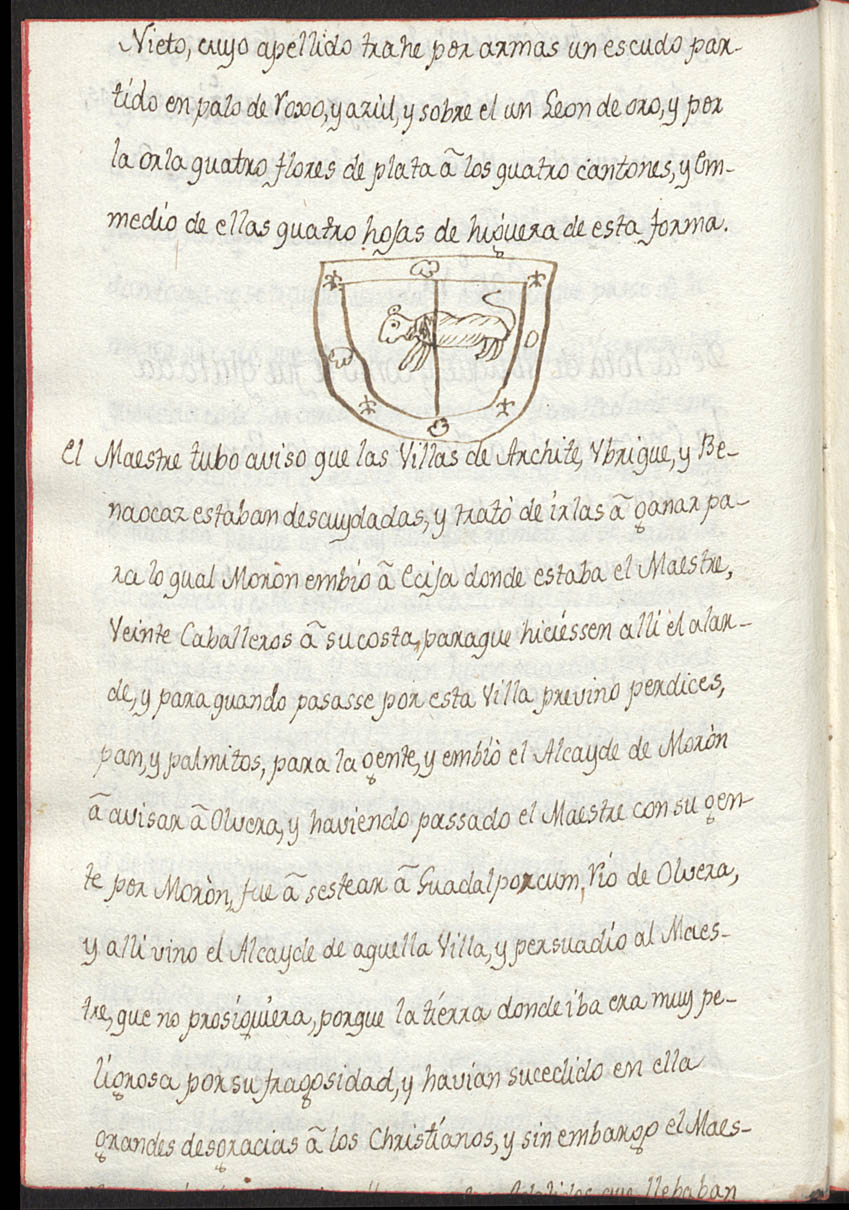 Nieto, cuyo apellido trahe por armas un escudo par-
tido en palo de roxo, y azul, y sobre el un Leon de oro, y por
la orla quatro flores de plata â los quatro cantones, y em-
medio de ellas quatro hojas de higuera de esta forma.
El Maestre tubo aviso que las Villas de Archite, Ybrique, y Be-
naocaz estaban descuydadas, y tratò de irlas â ganar pa-
ra lo qual Moròn embio â Ecija donde estaba el Maestre,
Veinte Caballeros â su costa, para que hiciéssen alli el alar-
de, y para quando pasasse por esta Villa previno perdices,
pan, y palmitos, para la gente, y embiò el Alcayde de Moròn
â avisar â Olvera, y haviendo passado el Maestre con su gen-
te por Moròn, fue â sestear â Guadalporcum, rio de Olvera,
y alli vino el Alcayde de aquella Villa, y persuadio al Maes-
tre, que no prosiguiera, porque la tierra donde iba era muy pe-
ligrosa por su fragosidad, y havian sucedido en ella
grandes desgracias â los Christianos, y sin embargo el Maes-
que llebaban